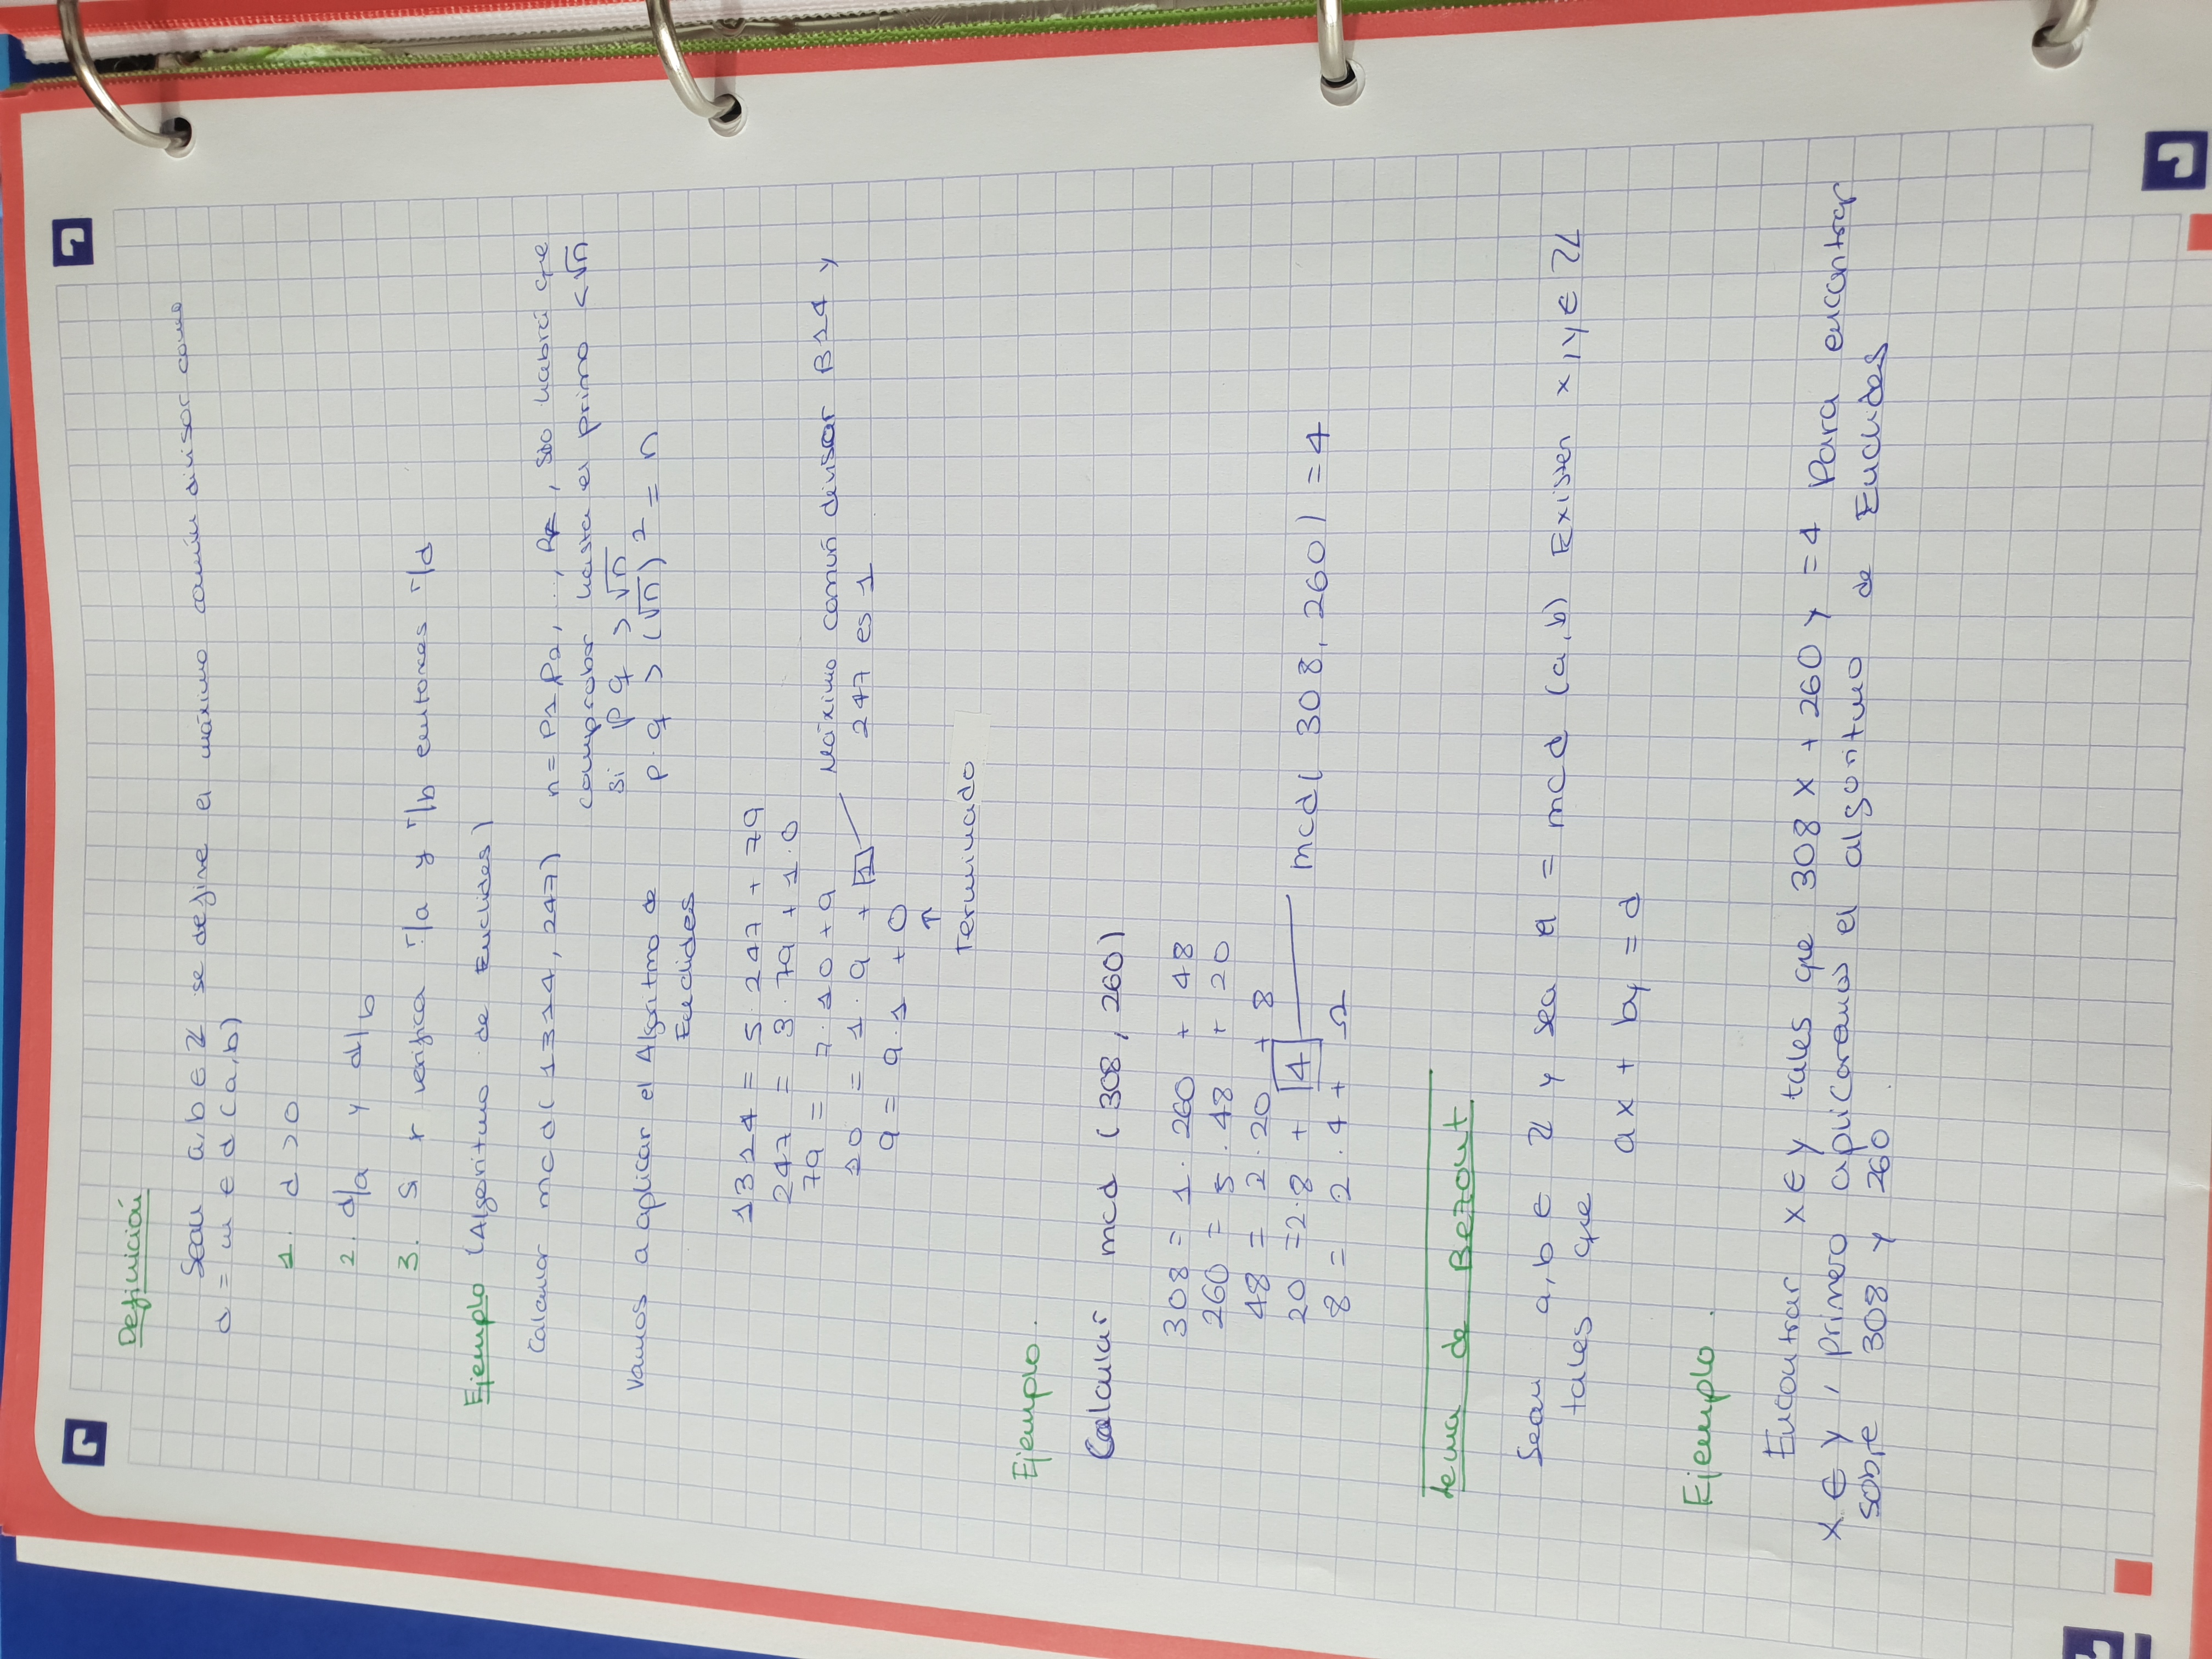 Definición
Sean a,b ∈ ℤ se define el máximo común divisor como
d = m c d (a,b)
1. d > 0
2. d/a y d/b
3. Si r verifica r/a y r/b entonces r/d
Ejemplo (Algoritmo de Euclides)
Calcular mcd(1314, 247)
n = p1 p2, ..., pk, solo habrá que
comprobar hasta el primo < √n
Si p q > √n
p · q > (√n)² = n
Vamos a aplicar el Algoritmo de
Euclides
1314 = 5 · 247 + 79
247 = 3 · 79 + 1 · 0
79 = 7 · 10 + 9
10 = 1 · 9 + 1
9 = 9 · 1 + 0
Máximo común divisor 1314 y
247 es 1
↑
Terminado
Ejemplo.
Calcular mcd (308, 260)
308 = 1 · 260 + 48
260 = 5 · 48 + 20
48 = 2 · 20 + 8
20 = 2 · 8 + 4
mcd( 308, 260) = 4
8 = 2 · 4 +
Lema de Bezout
Sean a, b ∈ ℤ y sea d = mcd (a,b) Existen x, y ∈ ℤ
tales que
ax + by = d
Ejemplo.
Encontrar x e y tales que 308 x + 260 y = 4 Para encontrar
x e y, primero aplicaremos el algoritmo de Euclides
sobre 308 y 260.